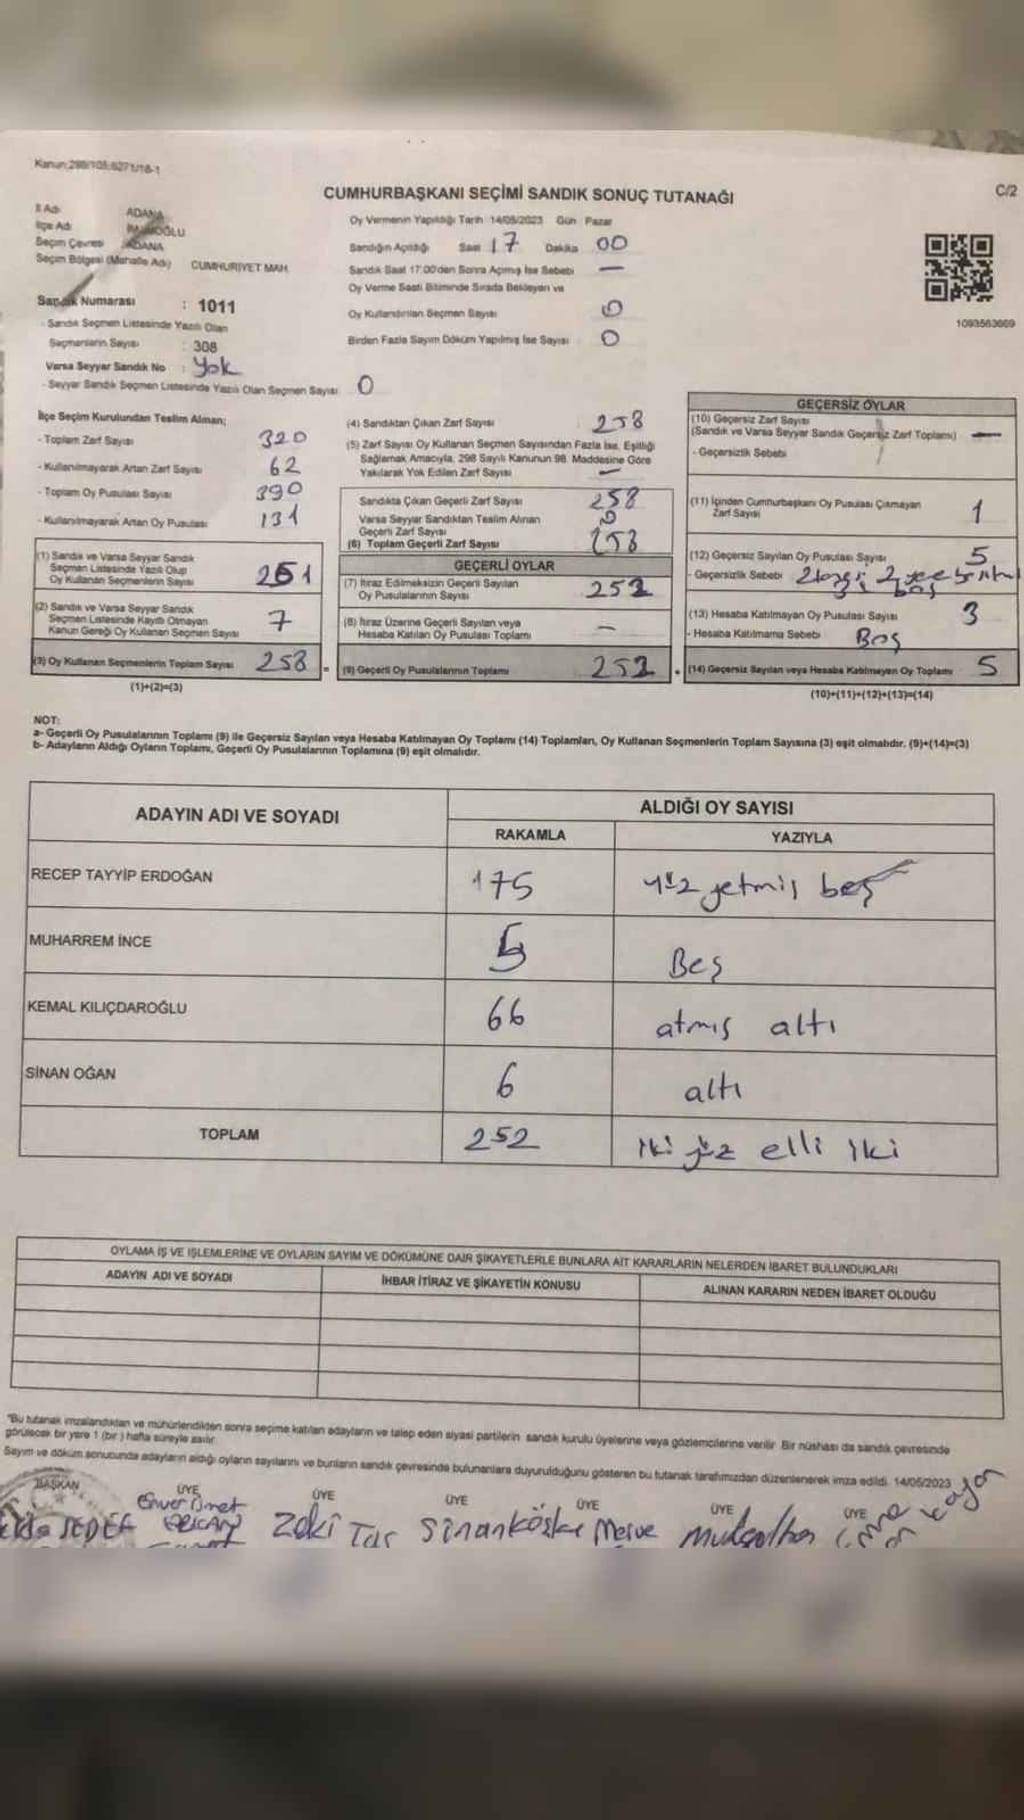 Kanun:298/105:6271/18-1
CUMHURBAŞKANI SEÇİMİ SANDIK SONUÇ TUTANAĞI
C/2
İl Adı ADANA
İlçe Adı
Seçim Çevresi ADANA
Seçim Bölgesi (Mahalle Adı) CUMHURİYET MAH.
Sandık Numarası : 1011
- Sandık Seçmen Listesinde Yazılı Olan
Seçmenlerin Sayısı : 308
Varsa Seyyar Sandık No : Yok
- Seyyar Sandık Seçmen Listesinde Yazılı Olan Seçmen Sayısı: 0
Oy Vermenin Yapıldığı Tarih 14/05/2023 Gün Pazar
Sandığın Açıldığı Saat 17 Dakika 00
Sandık Saat 17:00'den Sonra Açılmış İse Sebebi —
Oy Verme Saati Bitiminde Sırada Bekleyen ve
Oy Kullandırılan Seçmen Sayısı 0
Birden Fazla Sayım Döküm Yapılmış İse Sayısı 0
1093563669
İlçe Seçim Kurulundan Teslim Alınan;
- Toplam Zarf Sayısı 320
- Kullanılmayarak Artan Zarf Sayısı 62
- Toplam Oy Pusulası Sayısı 390
- Kullanılmayarak Artan Oy Pusulası 131
(1) Sandık ve Varsa Seyyar Sandık
Seçmen Listesinde Yazılı Olup
Oy Kullanan Seçmenlerin Sayısı 251
(2) Sandık ve Varsa Seyyar Sandık
Seçmen Listesinde Kayıtlı Olmayan
Kanun Gereği Oy Kullanan Seçmen Sayısı 7
(3) Oy Kullanan Seçmenlerin Toplam Sayısı 258 =
(1)+(2)=(3)
(4) Sandıktan Çıkan Zarf Sayısı 258
(5) Zarf Sayısı Oy Kullanan Seçmen Sayısından Fazla İse, Eşitliği
Sağlamak Amacıyla, 298 Sayılı Kanunun 98. Maddesine Göre
Yakılarak Yok Edilen Zarf Sayısı —
Sandıkta Çıkan Geçerli Zarf Sayısı 258
Varsa Seyyar Sandıktan Teslim Alınan
Geçerli Zarf Sayısı 0
(6) Toplam Geçerli Zarf Sayısı 258
GEÇERLİ OYLAR
(7) İtiraz Edilmeksizin Geçerli Sayılan
Oy Pusulalarının Sayısı 252
(8) İtiraz Üzerine Geçerli Sayılan veya
Hesaba Katılan Oy Pusulası Toplamı —
(9) Geçerli Oy Pusulalarının Toplamı 252 +
GEÇERSİZ OYLAR
(10) Geçersiz Zarf Sayısı
(Sandık ve Varsa Seyyar Sandık Geçersiz Zarf Toplamı) —
- Geçersizlik Sebebi
(11) İçinden Cumhurbaşkanı Oy Pusulası Çıkmayan
Zarf Sayısı 1
(12) Geçersiz Sayılan Oy Pusulası Sayısı 5
- Geçersizlik Sebebi
(13) Hesaba Katılmayan Oy Pusulası Sayısı 3
- Hesaba Katılmama Sebebi Boş
(14) Geçersiz Sayılan veya Hesaba Katılmayan Oy Toplamı 5
(10)+(11)+(12)+(13)=(14)
NOT:
a- Geçerli Oy Pusulalarının Toplamı (9) ile Geçersiz Sayılan veya Hesaba Katılmayan Oy Toplamı (14) Toplamları, Oy Kullanan Seçmenlerin Toplam Sayısına (3) eşit olmalıdır. (9)+(14)=(3)
b- Adayların Aldığı Oyların Toplamı, Geçerli Oy Pusulalarının Toplamına (9) eşit olmalıdır.
ADAYIN ADI VE SOYADI
ALDIĞI OY SAYISI
RAKAMLA YAZIYLA
RECEP TAYYİP ERDOĞAN 175 yüz yetmiş beş
MUHARREM İNCE 5 Beş
KEMAL KILIÇDAROĞLU 66 atmış altı
SİNAN OĞAN 6 altı
TOPLAM 252 iki yüz elli iki
OYLAMA İŞ VE İŞLEMLERİNE VE OYLARIN SAYIM VE DÖKÜMÜNE DAİR ŞİKAYETLERLE BUNLARA AİT KARARLARIN NELERDEN İBARET BULUNDUKLARI
ADAYIN ADI VE SOYADI İHBAR İTİRAZ VE ŞİKAYETİN KONUSU ALINAN KARARIN NEDEN İBARET OLDUĞU
"Bu tutanak imzalandıktan ve mühürlendikten sonra seçime katılan adayların ve talep eden siyasi partilerin sandık kurulu üyelerine veya gözlemcilerine verilir. Bir nüshası da sandık çevresinde
görülecek bir yere 1 (bir) hafta süreyle asılır.
Sayım ve döküm sonucunda adayların aldığı oyların sayılarını ve bunların sandık çevresinde bulunanlara duyurulduğunu gösteren bu tutanak tarafımızdan düzenlenerek imza edildi. 14/05/2023
BAŞKAN ÜYE ÜYE ÜYE ÜYE ÜYE ÜYE
SEDEF Zeki Taş Sinan Merve